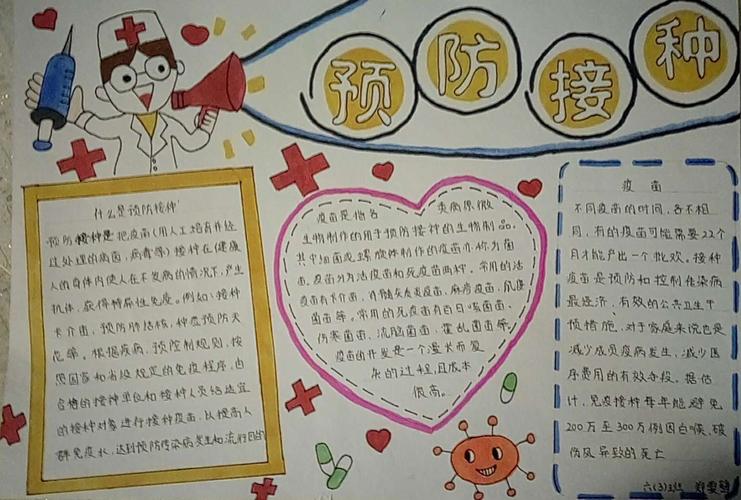 预防接种
什么是预防接种
预防接种是把疫苗(用人工培育并经
过处理的病菌,病毒等)接种在健康
人的身体内使人在不发病的情况下,产生
抗体,获得特异性免疫。例如:接种
卡介苗,预防肺结核,种痘预防天
花等,根据疾病,预控制规则,按
照国家和省级规定的免疫程序,由
合格的接种单位和接种人员给适宜
的接种对象进行接种疫苗,以提高人
群免疫水,达到预防传染病发生和流行目的
疫苗是指各 类病原微
生物制作的用于预防接种的生物制品.
其中细菌或螺旋体制作的疫苗亦称为菌
苗.疫苗分为活疫苗和死疫苗两种。常用的活
疫苗有卡介苗,脊髓灰质炎疫苗,麻疹疫苗,鼠疫
菌苗等。常用的死疫苗有百日咳菌苗,
伤寒菌苗、流脑菌苗、霍乱菌苗等
疫苗的开发是一个漫长而复
杂的过程,且成本
很高。
疫苗
不同疫苗的时间,各不相
同,有的疫苗可能需要22个
月才能产出一个批次。接种
疫苗是预防和控制传染病
最经济、有效的公共卫生干
预措施,对于家庭来说也是
减少成员疫病发生,减少医
疗费用的有效手段。据估
计,免疫接种每年能避免
200万至300万例因白喉、破
伤风导致的死亡
六(3)班